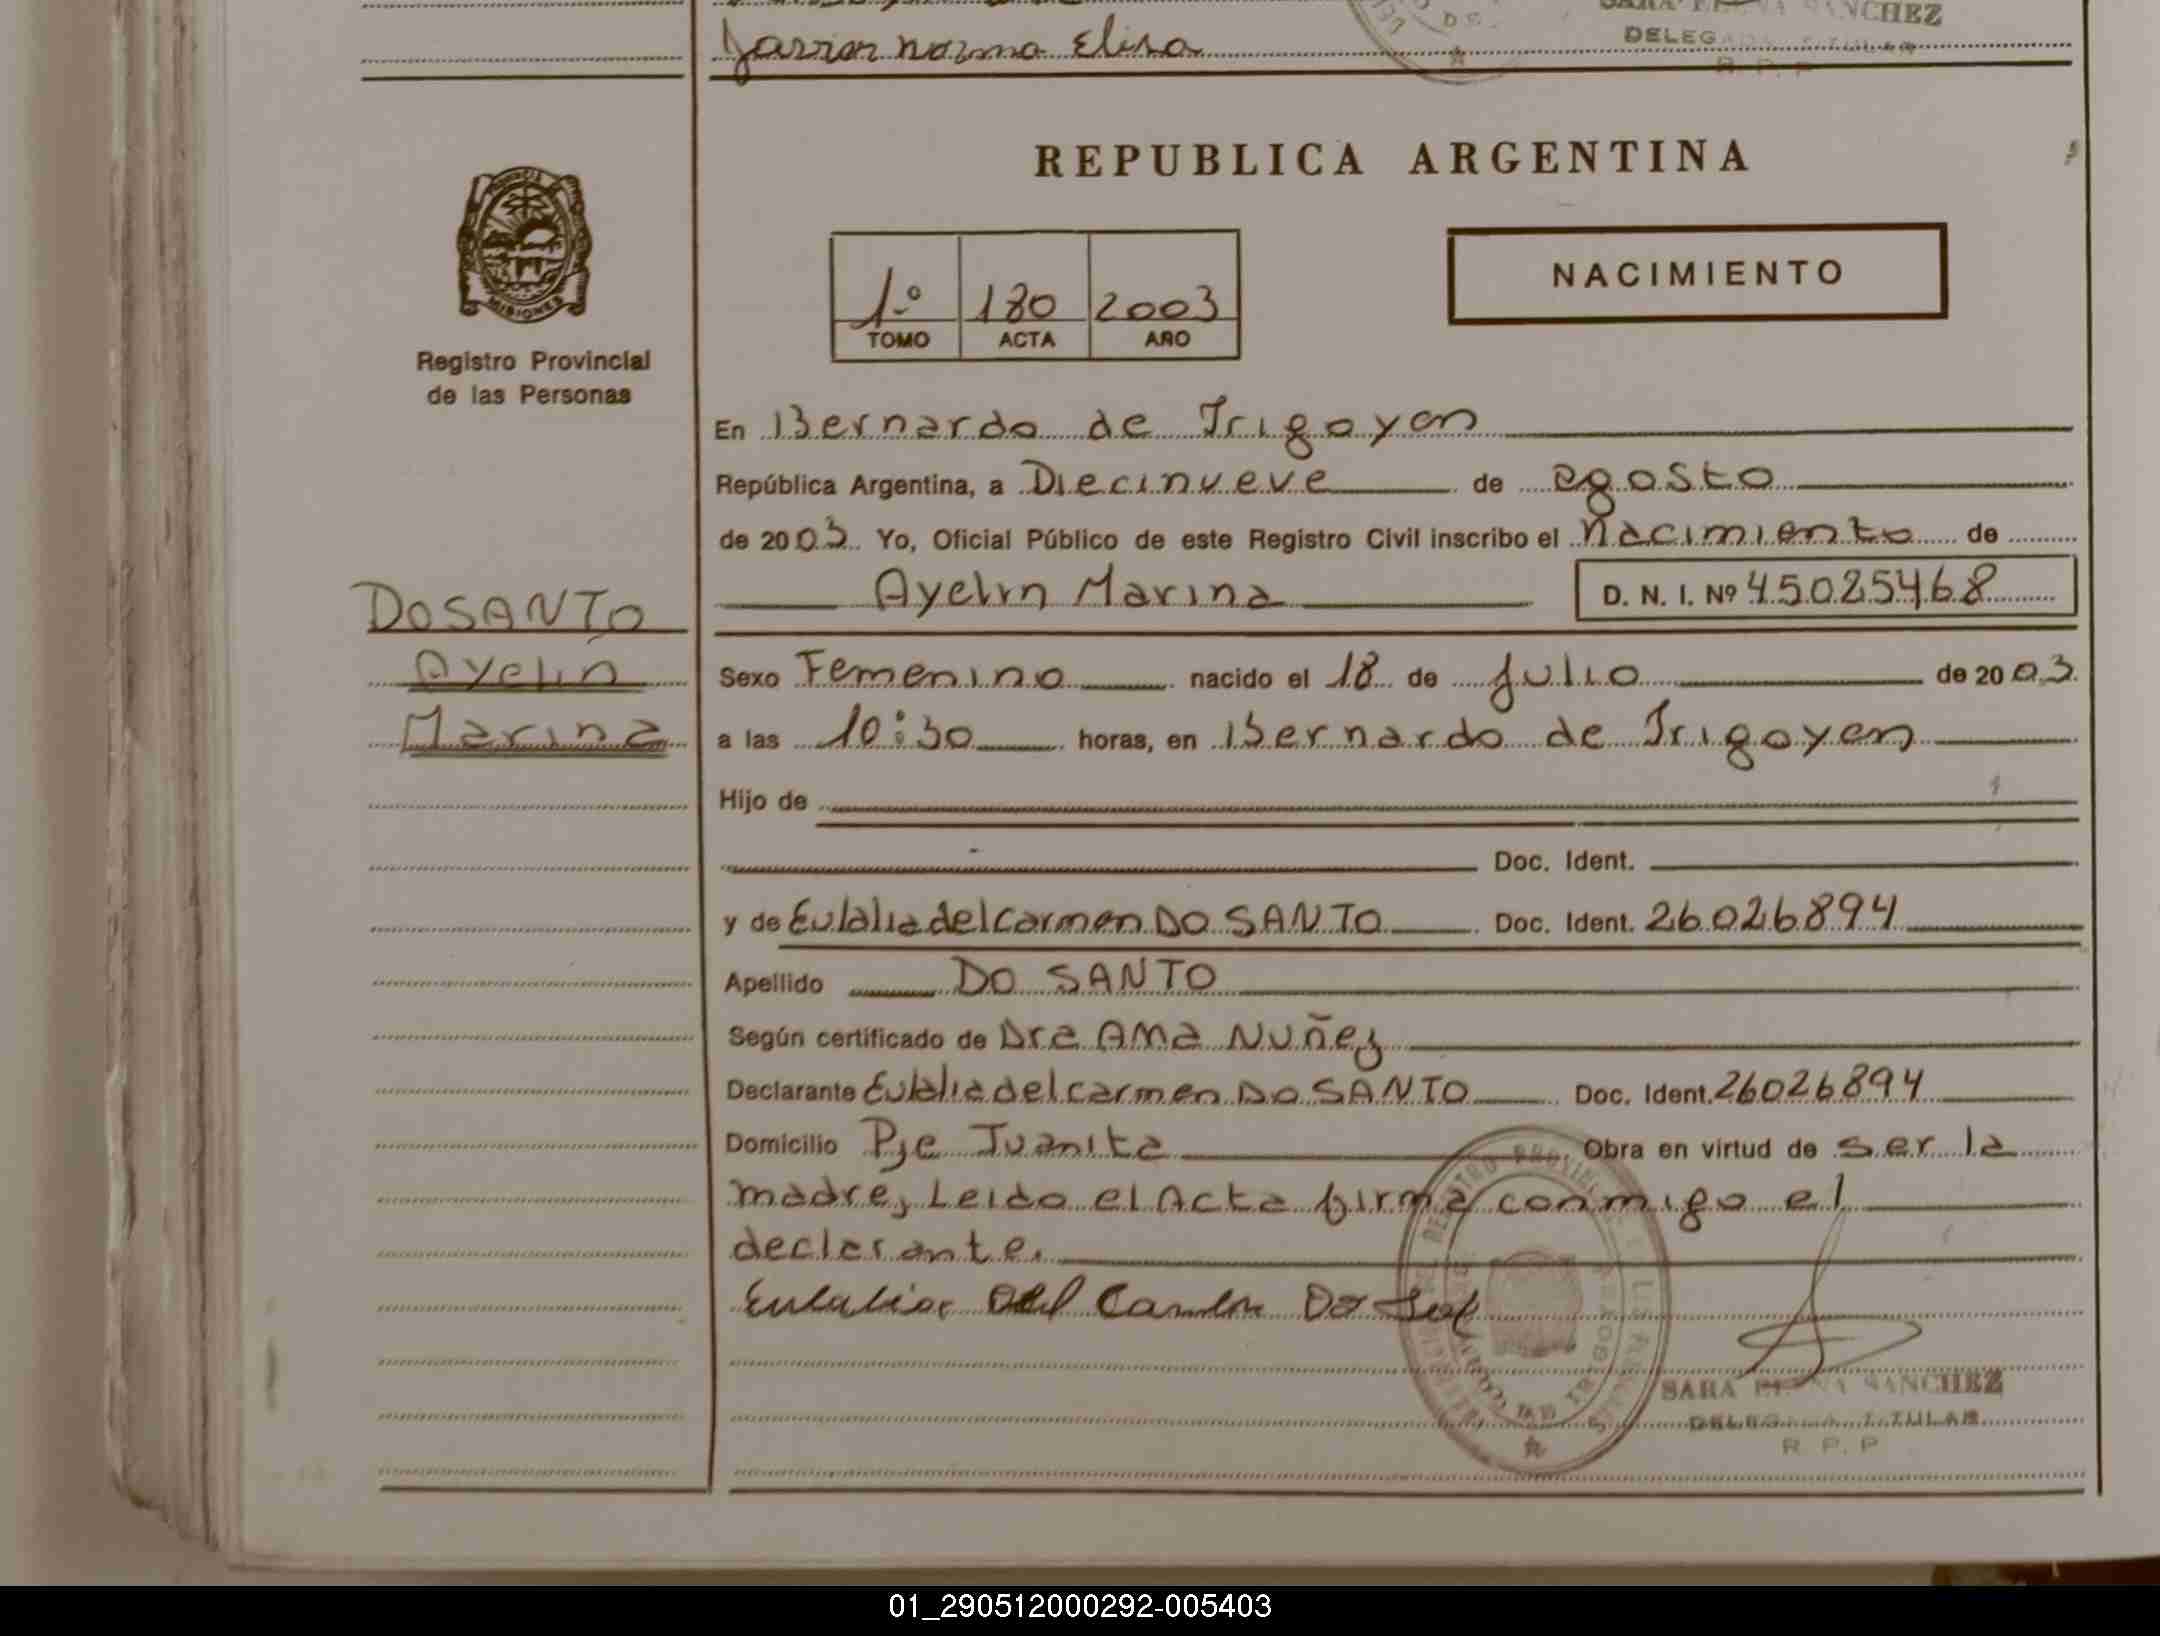 Javier Norma Elisa
SARA ELENA SANCHEZ
DELEGADA TITULAR
R. P. P
REPUBLICA ARGENTINA
PROVINCIA DE
MISIONES
Registro Provincial
de las Personas
1º 180 2003
TOMO ACTA AÑO
NACIMIENTO
En Bernardo de Irigoyen
República Argentina, a Diecinueve de agosto
de 2003 Yo, Oficial Público de este Registro Civil inscribo el Nacimiento de
Ayelin Marina D. N. I. Nº 45025468
DO SANTO
Ayelin
Marina
Sexo Femenino nacido el 18 de Julio de 2003
a las 10:30 horas, en Bernardo de Irigoyen
Hijo de
Doc. Ident.
y de Eulalia del Carmen DO SANTO Doc. Ident. 26026894
Apellido DO SANTO
Según certificado de Dra Ama Nuñez
Declarante Eulalia del Carmen DO SANTO Doc. Ident. 26026894
Domicilio Pje Juanita Obra en virtud de ser la
madre, Leido el Acta firma conmigo el
declarante.
Eulalia Del Carmen Do
SARA ELENA SANCHEZ
DELEGADA TITULAR
R. P. P
01_290512000292-005403